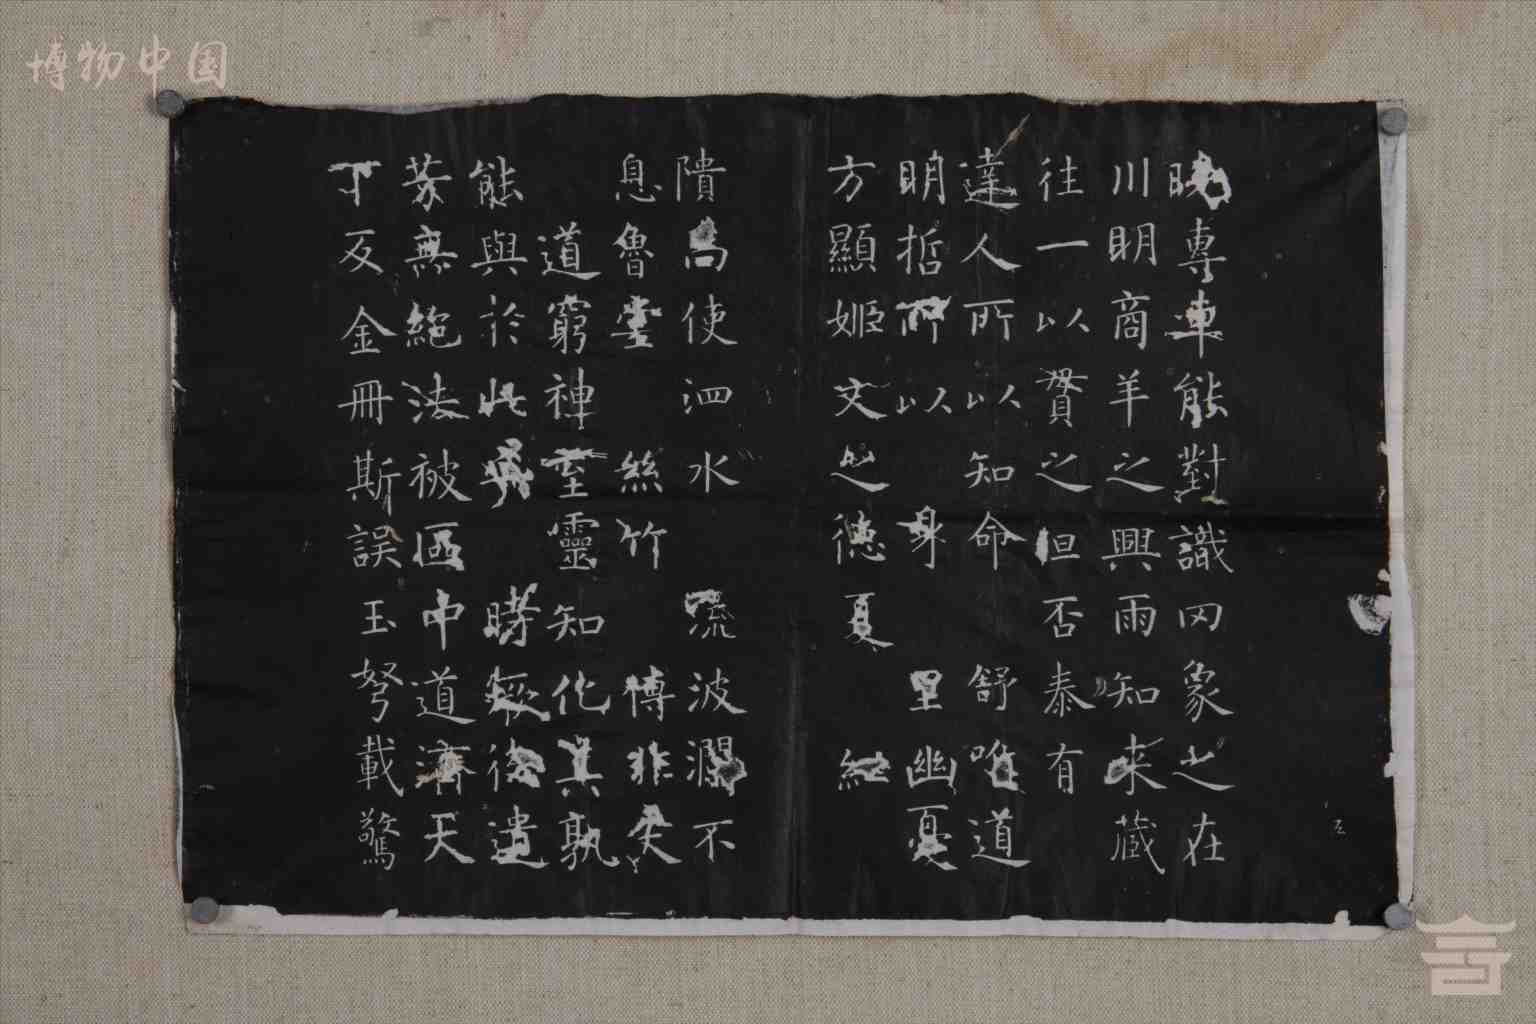 博物中国
曉專車能對識罔象之在
川明商羊之興雨知来蔵
往一以貫之但否泰有
達人所以知命舒唯道
明哲所以身里幽憂
方顯姬文之德夏
隤為使泗水流波瀾不
息魯堂絲竹博非矢
道窮神至靈知化其孰
能與於此時經後遺
芳無絶法被區中道濟天
下及金冊斯誤玉弩載驚
五